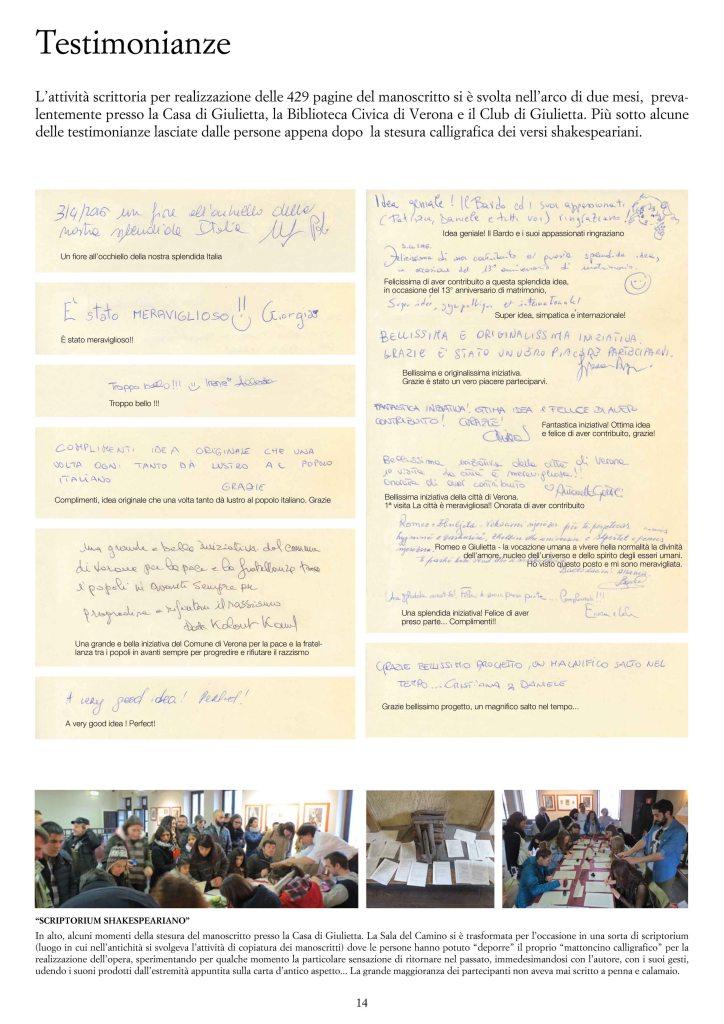 Testimonianze
L'attività scrittoria per realizzazione delle 429 pagine del manoscritto si è svolta nell'arco di due mesi, preva-
lentemente presso la Casa di Giulietta, la Biblioteca Civica di Verona e il Club di Giulietta. Più sotto alcune
delle testimonianze lasciate dalle persone appena dopo la stesura calligrafica dei versi shakespeariani.
3/4/2016 un fiore all'occhiello della
nostra splendida Italia
Un fiore all'occhiello della nostra splendida Italia
È stato MERAVIGLIOSO!! Giorgia
È stato meraviglioso!!
Troppo bello!!! Irene
Troppo bello !!!
COMPLIMENTI IDEA ORIGINALE CHE UNA
VOLTA OGNI TANTO DA LUSTRO AL POPOLO
ITALIANO
GRAZIE
Complimenti, idea originale che una volta tanto dà lustro al popolo italiano. Grazie
Una grande e bella iniziativa del comune
di Verona per la pace e la fratellanza tra
i popoli in avanti sempre per
progredire e rifiutare il razzismo
Una grande e bella iniziativa del Comune di Verona per la pace e la fratel-
lanza tra i popoli in avanti sempre per progredire e rifiutare il razzismo
A very good idea! Perfect!
A very good idea ! Perfect!
Idea geniale! Il Bardo ed i suoi appassionati
(Patrizia, Daniele e tutti voi) ringraziano!
Idea geniale! Il Bardo e i suoi appassionati ringraziano
Felicissima di aver contribuito a questa splendida idea,
in occasione del 13° anniversario di matrimonio.
Felicissima di aver contribuito a questa splendida idea,
in occasione del 13° anniversario di matrimonio,
Super idea, sympathique et internationale!
Super idea, simpatica e internazionale!
BELLISSIMA E ORIGINALISSIMA INIZIATIVA.
GRAZIE È STATO UN VERO PIACERE PARTECIPARVI.
Bellissima e originalissima iniziativa.
Grazie è stato un vero piacere parteciparvi.
FANTASTICA INIZIATIVA! OTTIMA IDEA E FELICE DI AVER
CONTRIBUITO! GRAZIE!
Fantastica iniziativa! Ottima idea
e felice di aver contribuito, grazie!
Bellissima iniziativa della città di Verona
1° visita la città è meravigliosa!!
Onorata di aver contribuito
Bellissima iniziativa della città di Verona.
1ª visita La città è meravigliosa!! Onorata di aver contribuito
Romeo e Giulietta - la vocazione umana a vivere nella normalità la divinità
dell'amore, nucleo dell'universo e dello spirito degli esseri umani.
Ho visto questo posto e mi sono meravigliata.
Una splendida iniziativa! Felice di aver preso parte... Complimenti!!!
Una splendida iniziativa! Felice di aver
preso parte... Complimenti!!
GRAZIE BELLISSIMO PROGETTO, UN MAGNIFICO SALTO NEL
TEMPO... CRISTIANA & DANIELE
Grazie bellissimo progetto, un magnifico salto nel tempo...
“SCRIPTORIUM SHAKESPEARIANO”
In alto, alcuni momenti della stesura del manoscritto presso la Casa di Giulietta. La Sala del Camino si è trasformata per l'occasione in una sorta di scriptorium
(luogo in cui nell'antichità si svolgeva l'attività di copiatura dei manoscritti) dove le persone hanno potuto “deporre” il proprio “mattoncino calligrafico” per la
realizzazione dell'opera, sperimentando per qualche momento la particolare sensazione di ritornare nel passato, immedesimandosi con l'autore, con i suoi gesti,
udendo i suoni prodotti dall'estremità appuntita sulla carta d'antico aspetto... La grande maggioranza dei partecipanti non aveva mai scritto a penna e calamaio.
14